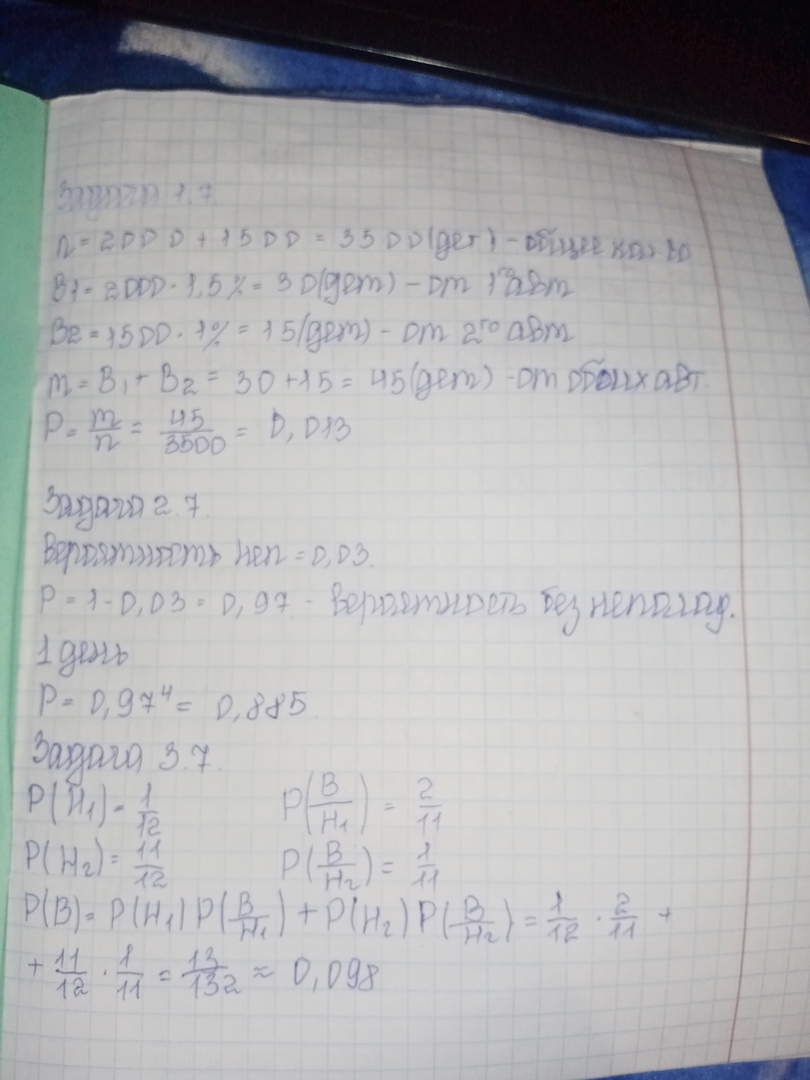 Задача 1.7
n = 2000 + 1500 = 3500(дет) - общее кол-во
B1 = 2000 · 1,5% = 30(дет) - от 1го авт
B2 = 1500 · 1% = 15(дет) - от 2го авт
m = B1 + B2 = 30 + 15 = 45(дет) - от обоих авт.
P = m/n = 45/3500 = 0,013
Задача 2.7.
Вероятность неп = 0,03.
P = 1 - 0,03 = 0,97 - вероятность без неполад.
1 день
P = 0,97⁴ = 0,885
Задача 3.7.
P(H1) = 1/12 P(B/H1) = 2/11
P(H2) = 11/12 P(B/H2) = 1/11
P(B) = P(H1) P(B/H1) + P(H2) P(B/H2) = 1/12 · 2/11 +
+ 11/12 · 1/11 = 13/132 ≈ 0,098